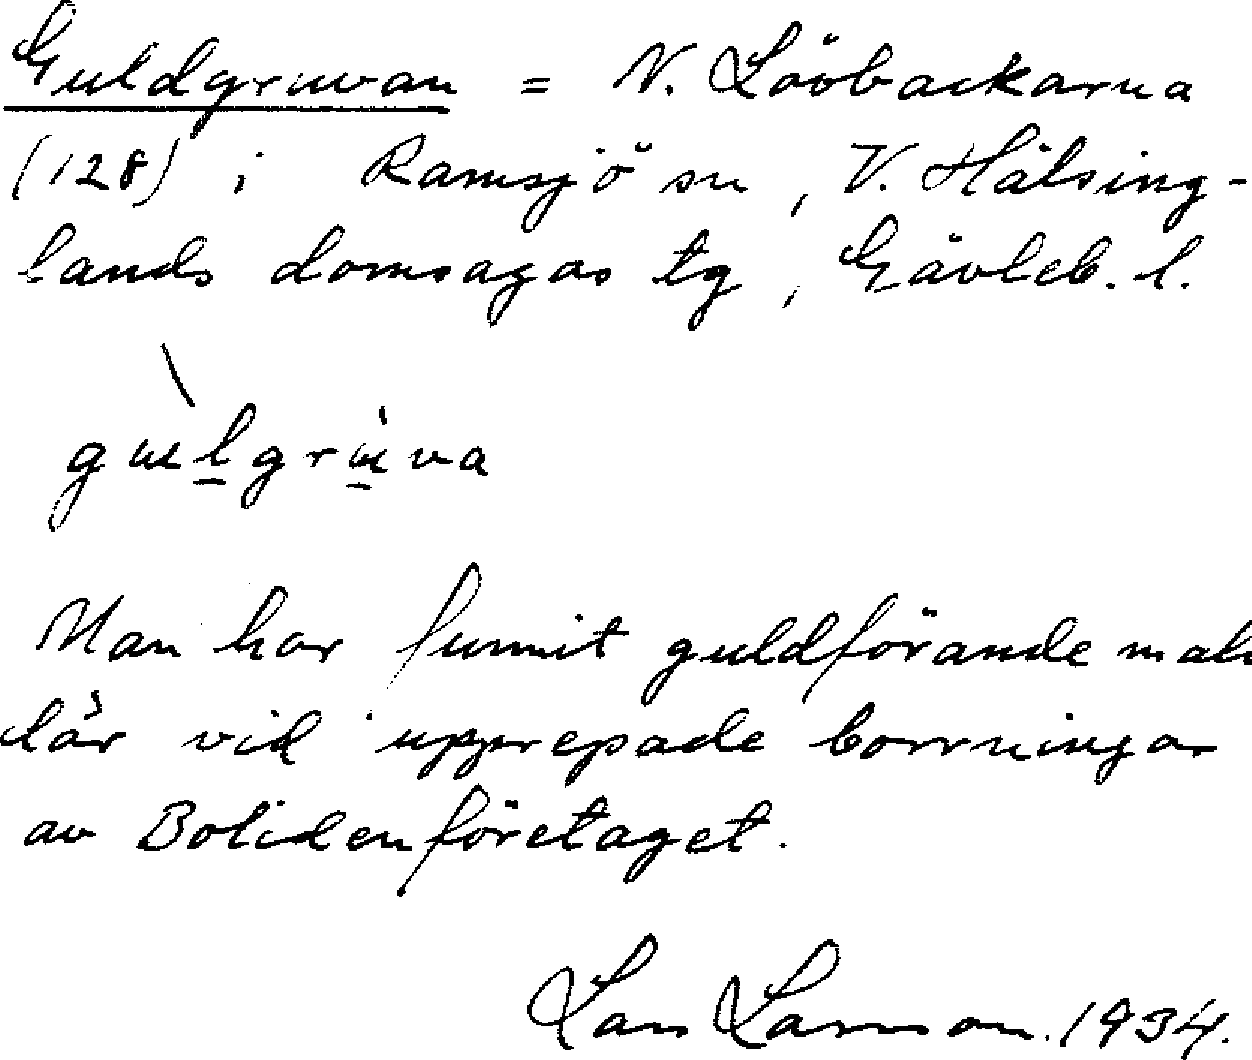 Guldgruvan = N. Lööbackarna
(128) i Ramsjö sn, V. Hälsing-
lands domsagas tg, Gävleb. l.
gulgruva
Man har funnit guldförande malm
där vid upprepade borrningar
av Bolidenföretaget.
Lars Larsson. 1934.